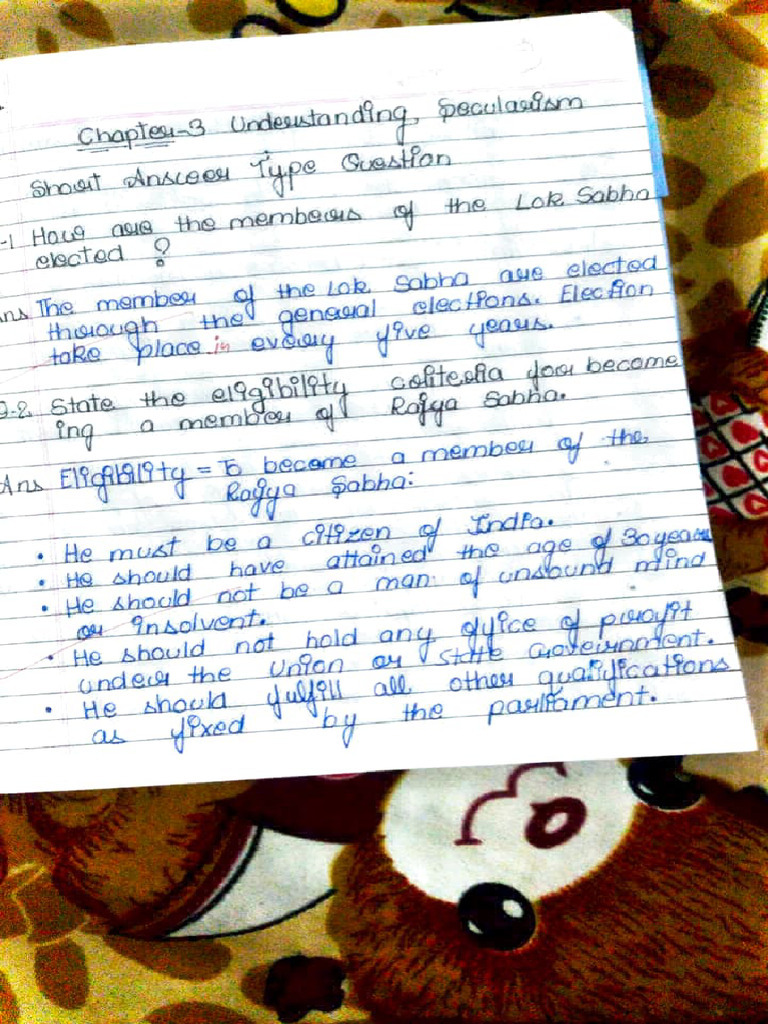 Chapter-3 Understanding Secularism
Short Answer Type Question
-1 How are the members of the Lok Sabha
elected ?
ns The member of the Lok Sabha are elected
through the general elections. Election
take place in every five years.
Q-2 State the eligibility criteria for become
ing a member of Rajya Sabha.
Ans Eligibility = To become a member of the
Rajya Sabha:
• He must be a citizen of India.
• He should have attained the age of 30 years
• He should not be a man of unsound mind
or insolvent.
• He should not hold any office of profit
under the Union or State Government.
• He should fulfill all other qualifications
as fixed by the parliament.